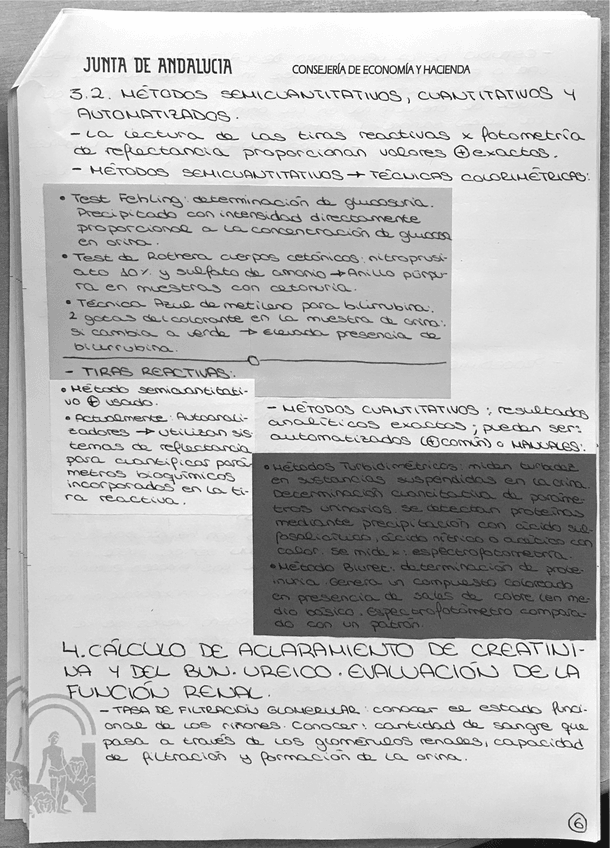 JUNTA DE ANDALUCIA
CONSEJERÍA DE ECONOMÍA Y HACIENDA
3.2. MÉTODOS SEMICUANTITATIVOS, CUANTITATIVOS Y
AUTOMATIZADOS.
- La lectura de las tiras reactivas x fotometría
de reflectancia proporcionan valores ⊕ exactos.
- MÉTODOS SEMICUANTITATIVOS → TÉCNICAS COLORIMÉTRICAS:
• Test Fehling: determinación de glucosuria.
Precipitado con intensidad directamente
proporcional a la concentración de glucosa
en orina.
• Test de Rothera cuerpos cetónicos: nitroprusi-
ato 10% y sulfato de amonio → Anillo púrpu-
ra en muestras con cetonuria.
• Técnica Azul de metileno para bilirrubina:
2 gotas del colorante en la muestra de orina:
si cambia a verde → elevada presencia de
bilirrubina.
- TIRAS REACTIVAS:
• Método semicuantitati-
vo ⊕ usado.
• Actualmente: Autoanali-
zadores → utilizan sis-
temas de reflectancia
para cuantificar pará-
metros bioquímicos
incorporados en la ti-
ra reactiva.
- MÉTODOS CUANTITATIVOS: resultados
analíticos exactos; pueden ser:
automatizados (⊕ común) o MANUALES:
• Métodos Turbidimétricos: miden turbidez
en sustancias suspendidas en la orina.
Determinación cuantitativa de paráme-
tros urinarios. Se detectan proteínas
mediante precipitación con ácido sul-
fosalicílico, ácido nítrico o acético con
calor. Se mide x: espectrofotometría.
• Método Biuret: determinación de prote-
inuria. Genera un compuesto coloreado
en presencia de sales de cobre (en me-
dio básico. Espectrofotómetro compara-
do con un patrón.
4. CÁLCULO DE ACLARAMIENTO DE CREATINI-
NA Y DEL BUN. UREICO. EVALUACIÓN DE LA
FUNCIÓN RENAL.
- TASA DE FILTRACIÓN GLOMERULAR: conocer el estado funci-
onal de los riñones. Conocer: cantidad de sangre que
pasa a través de los glomérulos renales, capacidad
de filtración y formación de la orina.
6